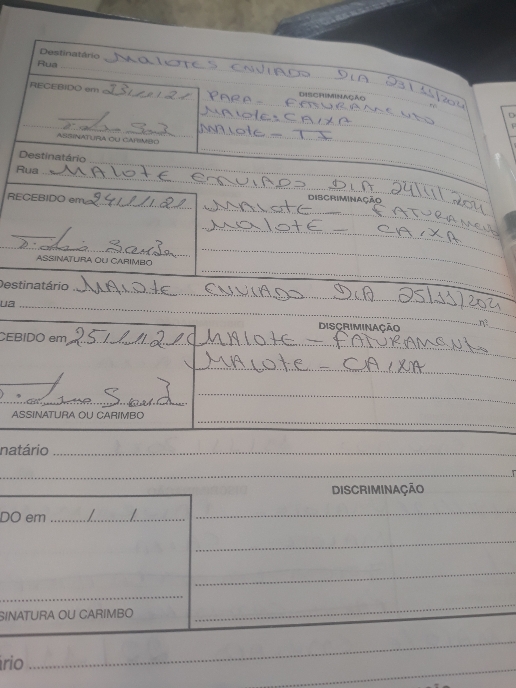 Destinatário MALOTES ENVIADO DIA 23/11/2021
Rua nº
RECEBIDO em 23/11/21
DISCRIMINAÇÃO
PARA - FATURAMENTO
MALOTE CAIXA
MALOTE - TI
ASSINATURA OU CARIMBO
Destinatário
Rua MALOTE ENVIADO DIA 24/11/2021
RECEBIDO em 24/11/21
DISCRIMINAÇÃO
MALOTE - FATURAMENTO
MALOTE - CAIXA
ASSINATURA OU CARIMBO
Destinatário MALOTE ENVIADO DIA 25/11/2021
ua nº
CEBIDO em 25/11/21
DISCRIMINAÇÃO
MALOTE - FATURAMENTO
MALOTE - CAIXA
ASSINATURA OU CARIMBO
natário
DISCRIMINAÇÃO
DO em / /
SINATURA OU CARIMBO
ário